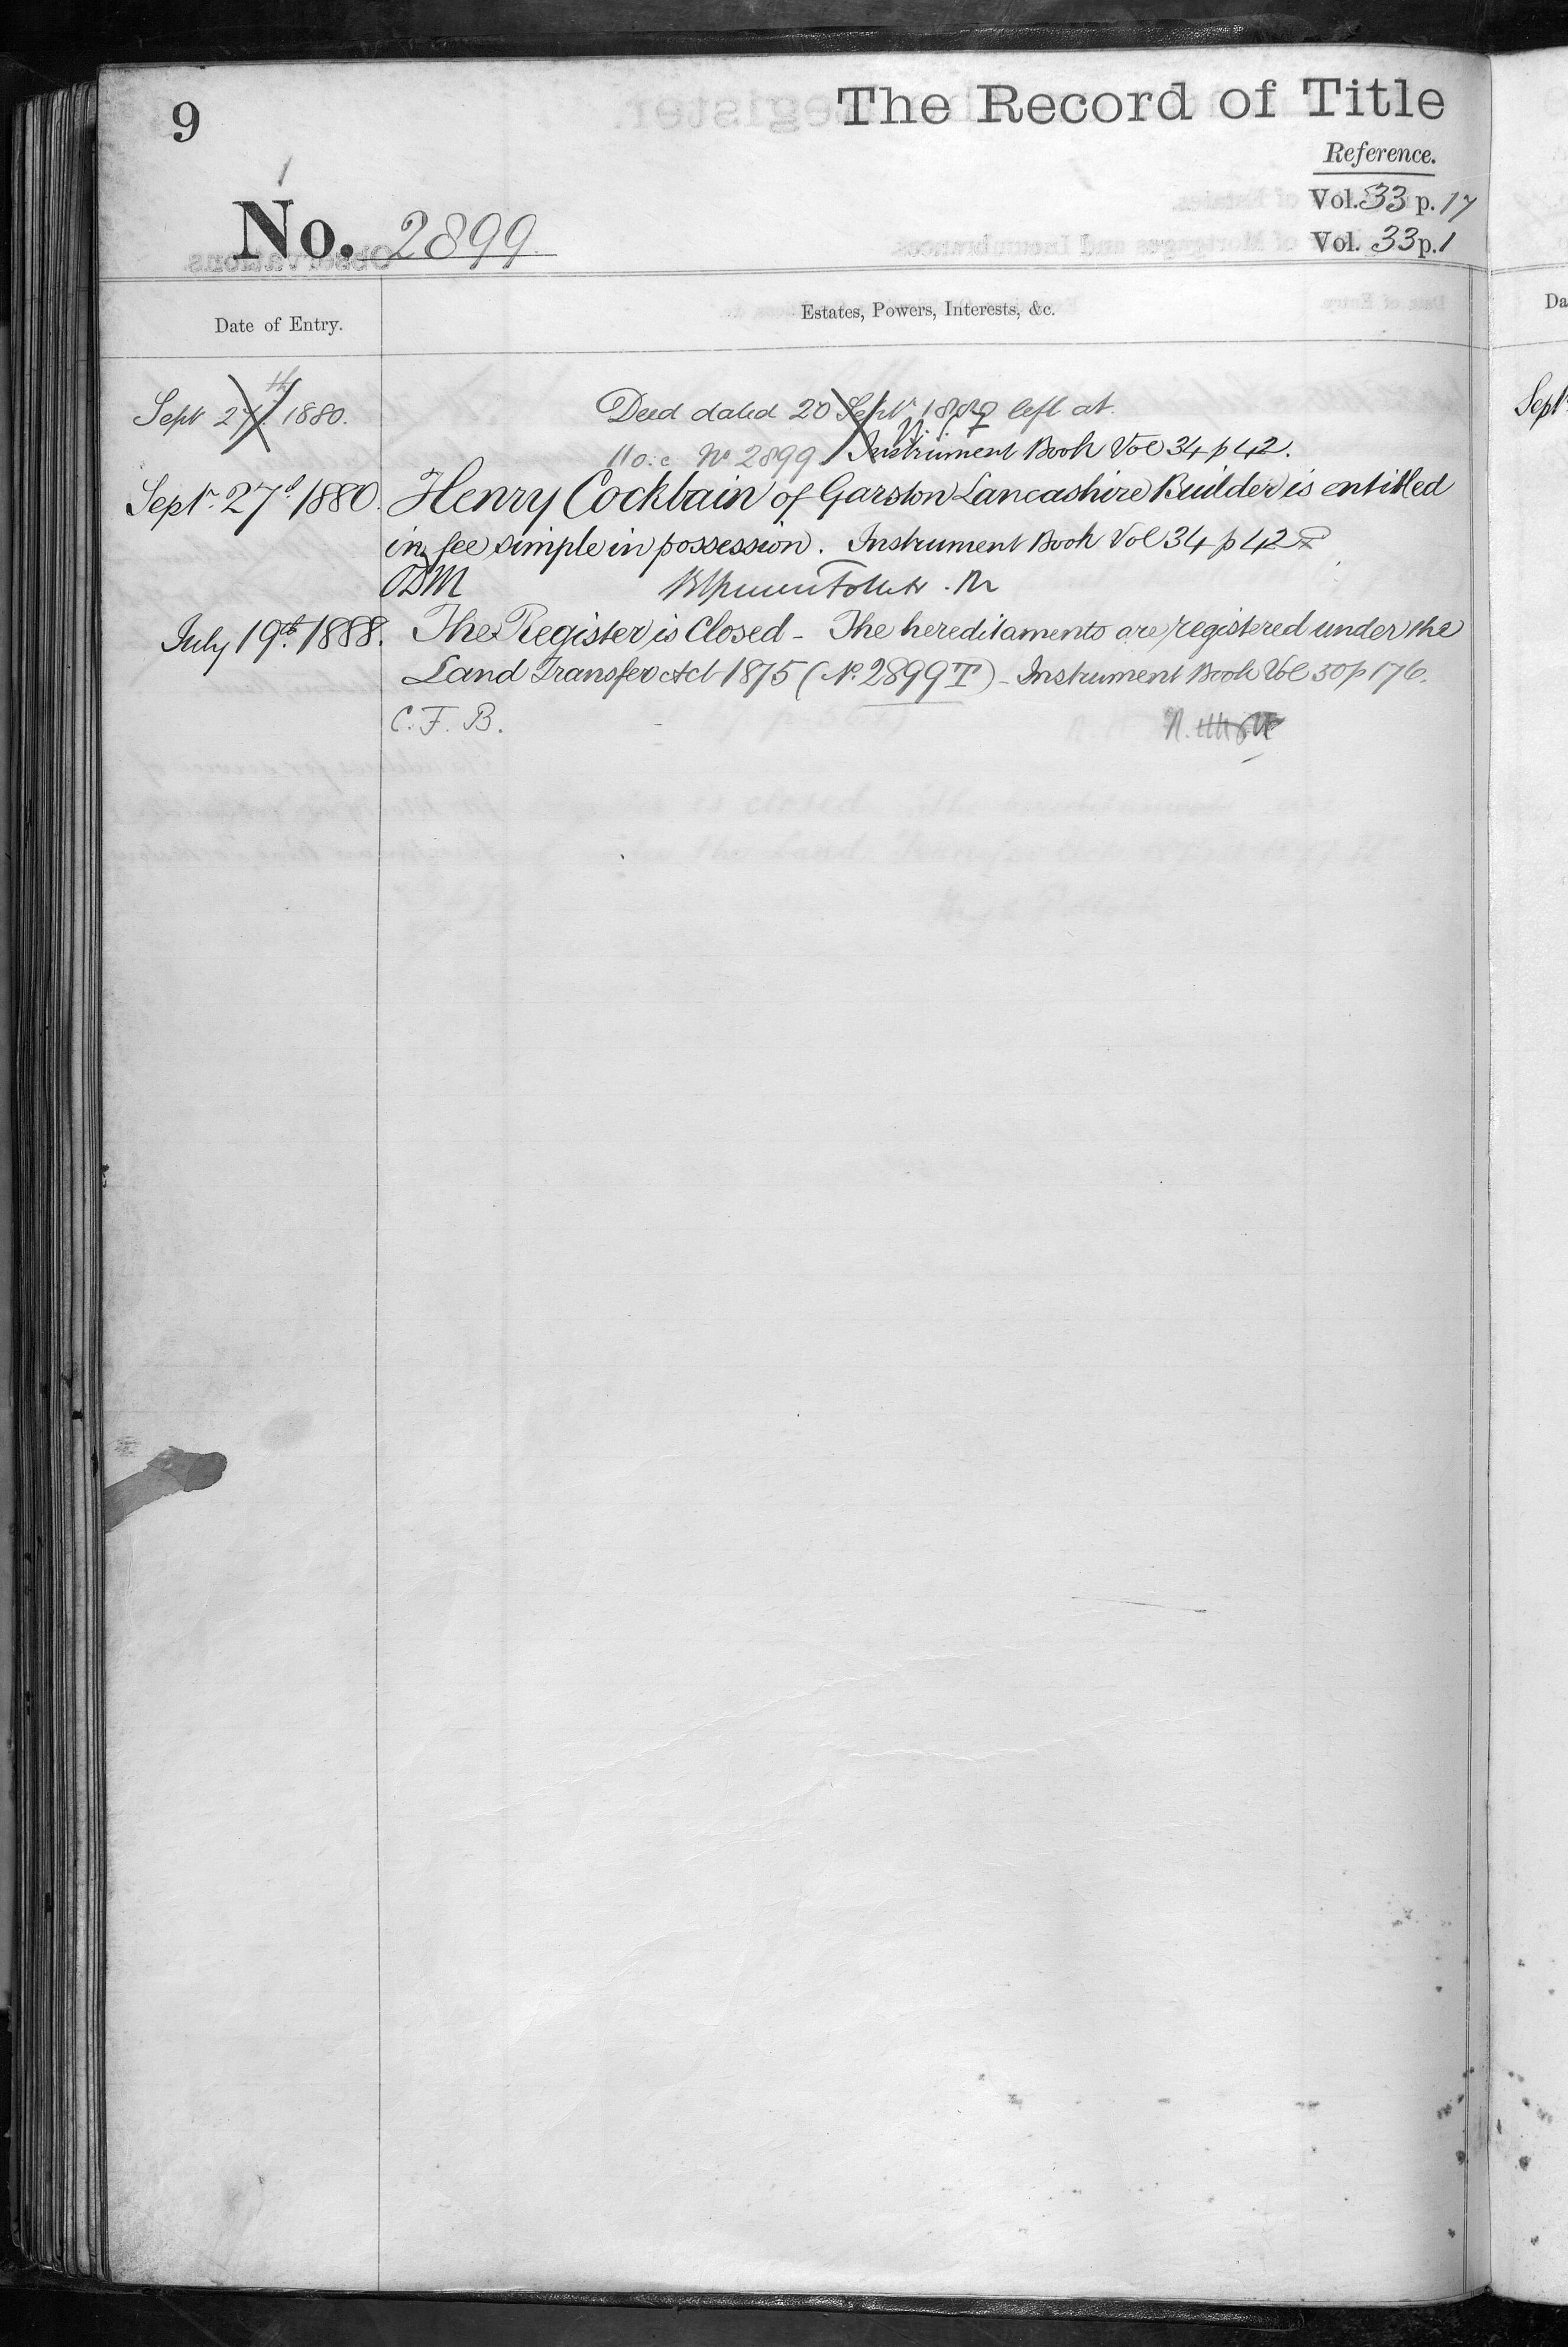 9
The Record of Title
Reference.
Vol. 33 p. 17
No. 2899
Vol. 33 p. 1
Date of Entry.
Estates, Powers, Interests, &c.
Da
Sept 27th 1880.
Deed dated 20 Sept 1880 left at
11 o.c No 2899 Instrument Book Vol 34 p 42.
Sept
Sept 27d 1880.
Henry Cockbain of Garston Lancashire Builder is entitled
in fee simple in possession. Instrument Book Vol 34 p 42
ODM
July 19th 1888.
The Register is Closed - The hereditaments are registered under the
Land Transfer Act 1875 (No 2899 T) - Instrument Book Vol 50 p 176.
C. F. B.